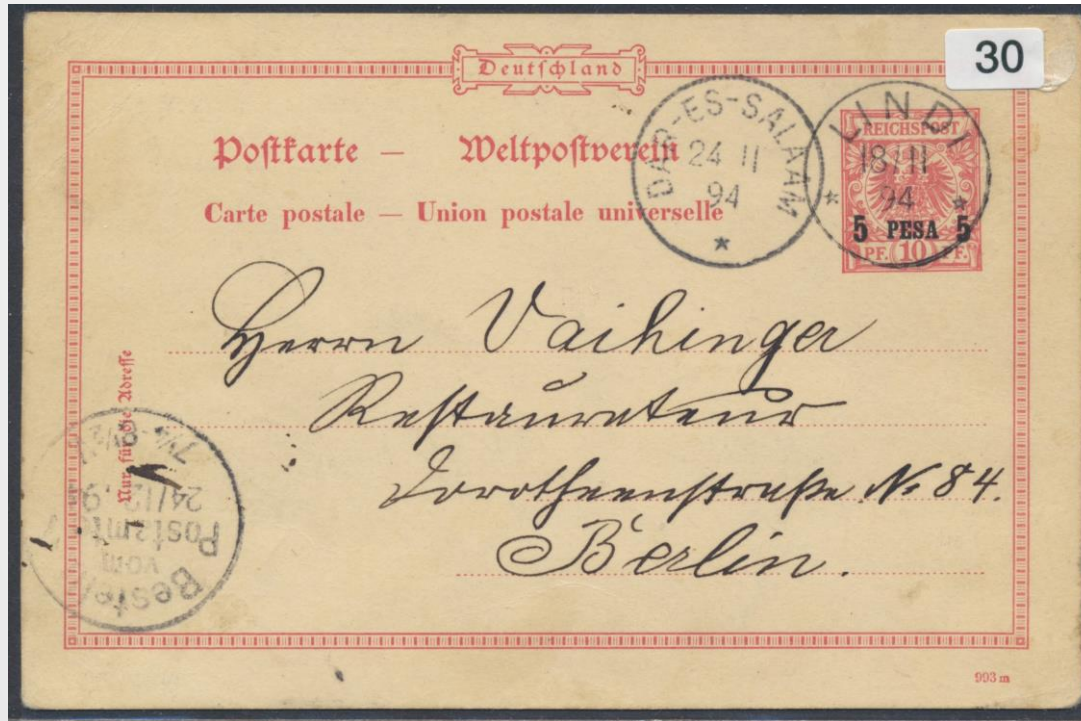 30
Deutschland
Postkarte — Weltpostverein
Carte postale — Union postale universelle
DAR-ES-SALAAM
24 11
94
*
LINDI
18/11
94
* *
REICHSPOST
5 PESA 5
PF. 10 PF.
Herrn Vaihinger
Restaurateur
Dorotheenstraße No 84.
Berlin.
Nur für die Adresse
Bestellt
vom
Postamte
24/12.9
7¼-8½
993 m